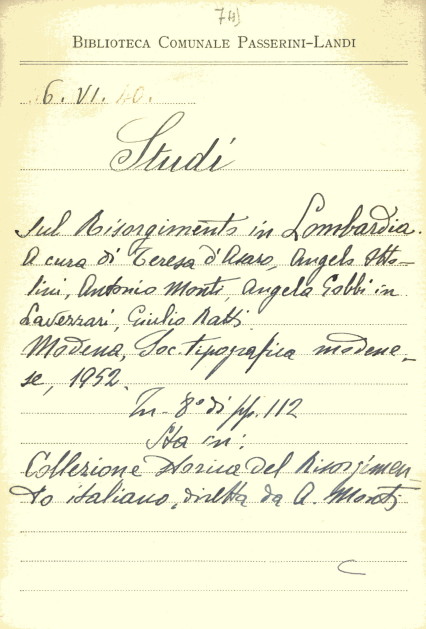 74)
BIBLIOTECA COMUNALE PASSERINI-LANDI
6. VI. 40.
Studi
sul Risorgimento in Lombardia.
A cura di Teresa d'Asaro, Angelo Otto-
lini, Antonio Monti, Angela Gobbi in
Lavezzari, Giulio Ratti.
Modena, Soc. tipografica modene-
se, 1952.
In-8° di pp. 112
Sta in:
Collezione storica del Risorgimen-
to italiano, diretta da A. Monti
C